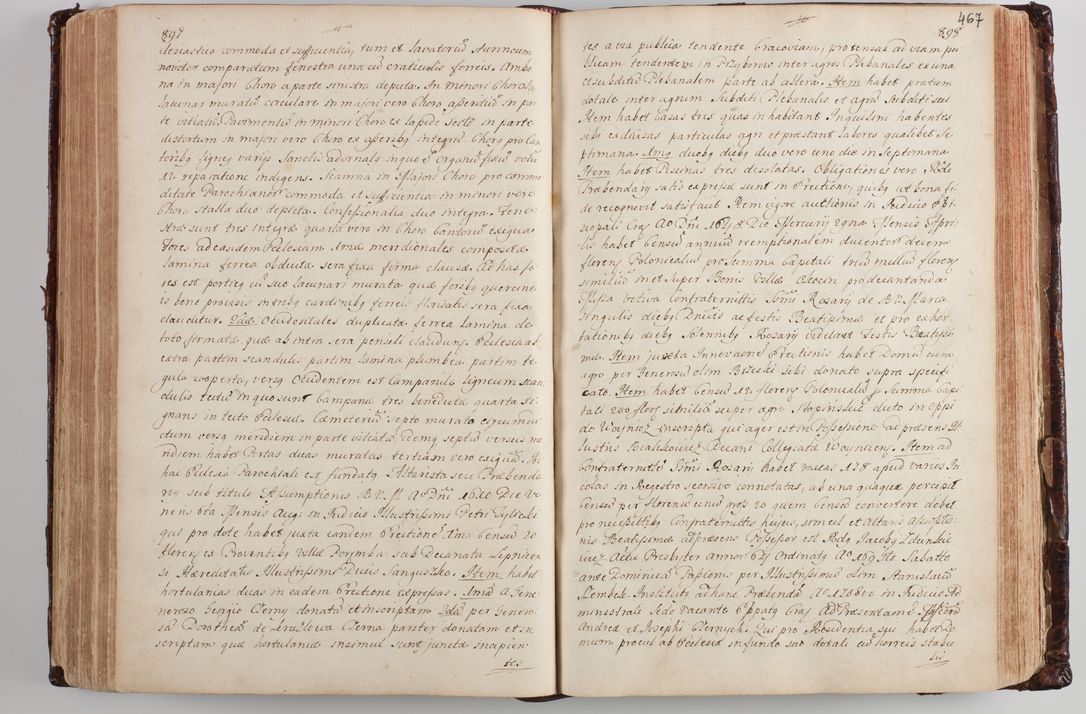 897
clesiastico commoda et sufficientia, tum et Lavatoriũ stanneum
noviter comparatum fenestra una cũ craticulis ferreis. Ambo
na in majori Choro a parte sinistra depicta. In minori Choro
lacunar muratũ circulare in majori vero Choro asserdiũ in par
te vitiatũ. Pavimentũ in minori Choro ex lapide secto in parte
distortum in majori vero Choro ex asserib9 integrũ. Chor9 pro Can
torib9 ligne9 varijs Sanctis adornat9 in quo ẽ Organũ fixũ votũ
12 reparatione indigens. Scamna in Majori Choro pro commo
ditate Parochianorũ commoda et sufficientia in minori vero
Choro stalla duo depicta. Confessionalia duo integra. Fene
stræ sunt tres integræ quarta vero in Choro Cantorũ exigua.
Fores ad eandem Ecclesiam Imæ meridionales compositæ
lamina ferrea obductæ sera fixa firma clausæ. Ad has fo
res est portic9 cũ suo lacunari murata quæ forib9 querceis
is bene provisis intrib9 cardinib9 ferreis sera fixa
clauditur. 2dæ Occidentales duplicatæ ferrea lamina de
toto firmatæ quæ ab intra sera pensili claudunt9. Ecclesia ab
extra partim scandulis partim lamina plumbea partim te
gula cooperta, vers9 Occidentem est Campanila ligneum scan
dulis tectũ in quo sunt campanæ tres benedictæ quarta si
gnans in tecto Ecclesiæ. Cæmeteriũ septo murato circumdu
ctum vers9 meridiem in parte vitiatũ. Demq septũ versus me
ridiem habet Portas duas muratas tertiam vero exiguã. In
hac Ecclesia Parochiali est fundat9 Altarista seu Præbenda
ri9 sub titulo Assumptionis B.V.M. Ao Dñi 16 Die Ve
neris 6ta Mensis Aug. in Judicio Illustrissimi Petri Tylicki
qui pro dote habet juxta eandem Erectionẽ Imo Censũ 20
floren9 ex Proventib9 Villæ Poremba sub Decanatu Lipnicen
si Hæreditatis Illustrissimi Ducis Sangusko. Item habet
hortulanias duas in eadem Erectione expressas. Imã a Gene
neroso Georgio Czerny donatã et inscriptam 2dã per Genero
sã Dorotheã de Czerna pariter donatam et in
scriptam quæ hortulaniæ insimul sunt junctæ incipien
tes
467
898
tes a via publica tendente Cracoviam, protensas ad viam pu
blicam tendentem in Przyborow inter agros Plebanales ex una
et subditũ Plebanalem parte ab altera. Item habet pratum
dotale inter agrum Subditi Plebanalis et agrũ Subditi sui
Item habet Casas tres quas inhabitant Inquilini habentes
sibi exdivisas particulas agri et præstant labores qualibet Se
ptimana. Im9 duob9 dieb9 duo vero uno die in Septimana
Item habet Piscinas tres desolatas. Obligationes vero Rndi
Præbendarij satis expressæ sunt in Erectione, quib9 ut bona fi
de recognovit satisfacit. Item vigore authionis in Judicio Epi
scopali Crac. Ao Dñi 1678 Die Mercurij 29na Mensis Apri
lis habet Censũ annuũ reemptionalem ducentorũ decem
florenũ Polonicaliũ pro Summa Capitali triũ milliũ florenũ
similiũ in et super Bonis Villæ Okocim pro decantanda
Missa votiva Confraternitatis Smi Rosarij de B. V. Maria
singulis dieb9 Dnicis ac festis Beatissimæ et pro exhor
tationib9 dieb9 Solennib9 Rosarij videlicet Festis Beatissi
mæ. Item juxta Innovatnẽ Erectionis habet Domũ cum
agro per Generosũ olim Brzeski sibi donato supra specifi
cato. Item habet Censũ 12 florenũ Polonicaliũ p Summa Capi
tali 200 florũ similiũ super agro Stopinskie dicto in Oppi
do Woynicz inscripta qui ager est in Possessione ad præsens Il
lustris Bialkowicz Decani Collegiatæ Woynicen9. Item ad
Confraternitẽ Smi Rosarij habet vaccas 178 apud varios In
colas in Regestro recensivo connotatas, ab una quaque percipit
Censũ per florenũ unũ gros. 20 quem Censũ convertere debet
pro necessitatib9 Confraternitatis hujus, simul et Altaris Assumptio
nis Beatissimæ ad præsens Possessor est Rnd9 Jacob9 Zdunskie
wicz Actu Presbyter Annor9 67 Ordinat9 Ao 1679 Sabbato
ante Dominicã Passionis per Illustrissimũ olim Stanislaũ
Szembek. Institut9 ad hanc Præbendã Ao 1708vo in Judicio Ad
ministrali Sede vacante Eppat9 Crac. Ad Præsentaõnẽ Mfficorũ
Andreæ et Josephi Czernych. Qui pro Residentia sui habet Do
mum procul ab Ecclesia in fundo suo dotali cũ horreis stabu
lis